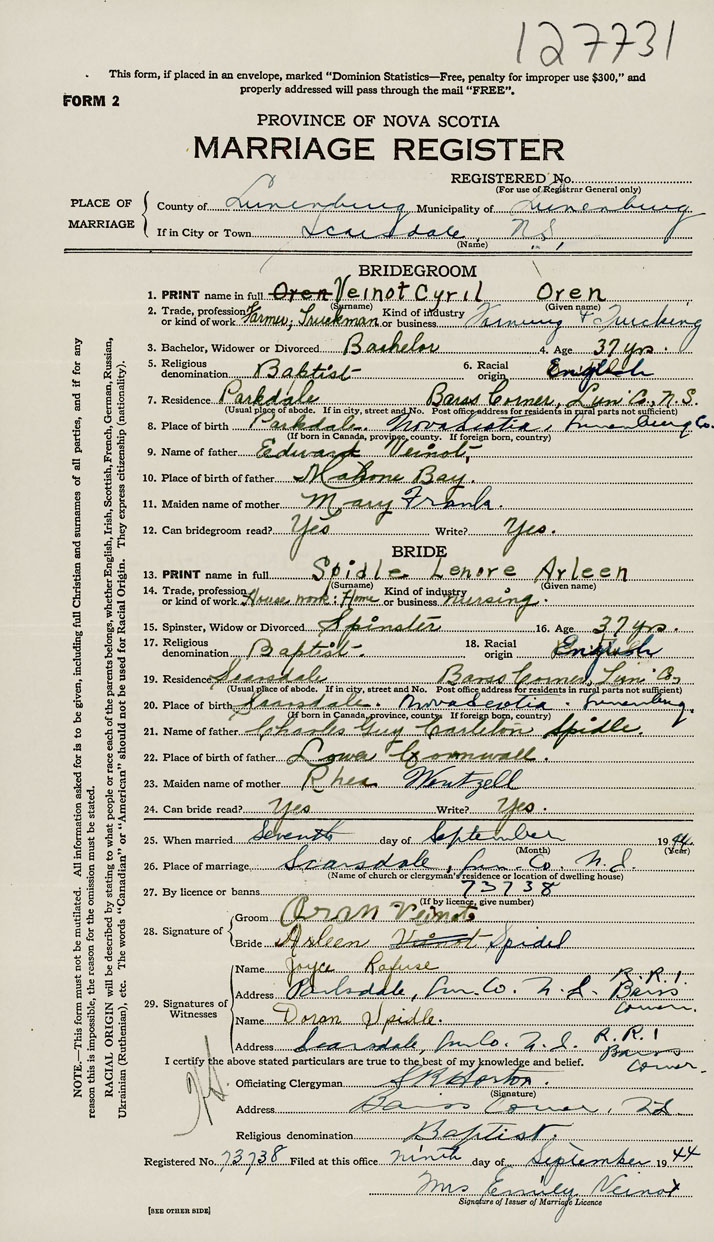 127731
This form, if placed in an envelope, marked "Dominion Statistics—Free, penalty for improper use $300," and
properly addressed will pass through the mail "FREE".
FORM 2
PROVINCE OF NOVA SCOTIA
MARRIAGE REGISTER
REGISTERED No.
(For use of Registrar General only)
PLACE OF MARRIAGE
County of Lunenburg Municipality of Lunenburg
If in City or Town Scarsdale N.S.
(Name)
BRIDEGROOM
1. PRINT name in full Oren Veinot Cyril Oren
(Surname) (Given name)
2. Trade, profession or kind of work Farmer, Truckman Kind of industry or business Farming & Trucking
3. Bachelor, Widower or Divorced Bachelor 4. Age 37 yrs.
5. Religious denomination Baptist 6. Racial origin English
7. Residence Parkdale Barss Corner, Lun. Co., N.S.
(Usual place of abode. If in city, street and No. Post office address for residents in rural parts not sufficient)
8. Place of birth Parkdale. Nova Scotia, Lunenburg Co.
(If born in Canada, province, county. If foreign born, country)
9. Name of father Edward Veinot,
10. Place of birth of father Mahone Bay.
11. Maiden name of mother Mary Frank.
12. Can bridegroom read? Yes Write? Yes.
BRIDE
13. PRINT name in full Spidle Lenore Arleen
(Surname) (Given name)
14. Trade, profession or kind of work House work: Home Kind of industry or business Nursing.
15. Spinster, Widow or Divorced Spinster 16. Age 37 yrs.
17. Religious denomination Baptist 18. Racial origin English
19. Residence Scarsdale Barss Corner, Lun. Co,
(Usual place of abode. If in city, street and No. Post office address for residents in rural parts not sufficient)
20. Place of birth Scarsdale. Nova Scotia. Lunenburg.
(If born in Canada, province, county. If foreign born, country)
21. Name of father Charles Guy Carleton Spidle.
22. Place of birth of father Lower Cornwall.
23. Maiden name of mother Rhea Wentzell
24. Can bride read? Yes Write? Yes.
25. When married Seventh day of September 1944
(Month) (Year)
26. Place of marriage Scarsdale, Lun. Co. N.S.
(Name of church or clergyman's residence or location of dwelling house)
27. By licence or banns 73738
(If by licence, give number)
28. Signature of
Groom Oran Veinot
Bride Arleen Veinot Spidel
29. Signatures of Witnesses
Name Joyce Rafuse
Address Parksdale, Lun. Co. N.S. R.R.1 Barss Corner.
Name Doran Spidle.
Address Scarsdale, Lun Co. N.S. R.R.1 Barss Corner.
I certify the above stated particulars are true to the best of my knowledge and belief.
Officiating Clergyman S R Horton.
(Signature)
Address Barss Corner, N.S.
Religious denomination Baptist.
Registered No. 73738 Filed at this office ninth day of September 1944
Mrs Emily Veinot
Signature of Issuer of Marriage Licence
[SEE OTHER SIDE]
NOTE.—This form must not be mutilated. All information asked for is to be given, including full Christian and surnames of all parties, and if for any
reason this is impossible, the reason for the omission must be stated.
RACIAL ORIGIN will be described by stating to what people or race each of the parents belongs, whether English, Irish, Scottish, French, German, Russian,
Ukrainian (Ruthenian), etc. The words "Canadian" or "American" should not be used for Racial Origin. They express citizenship (nationality).